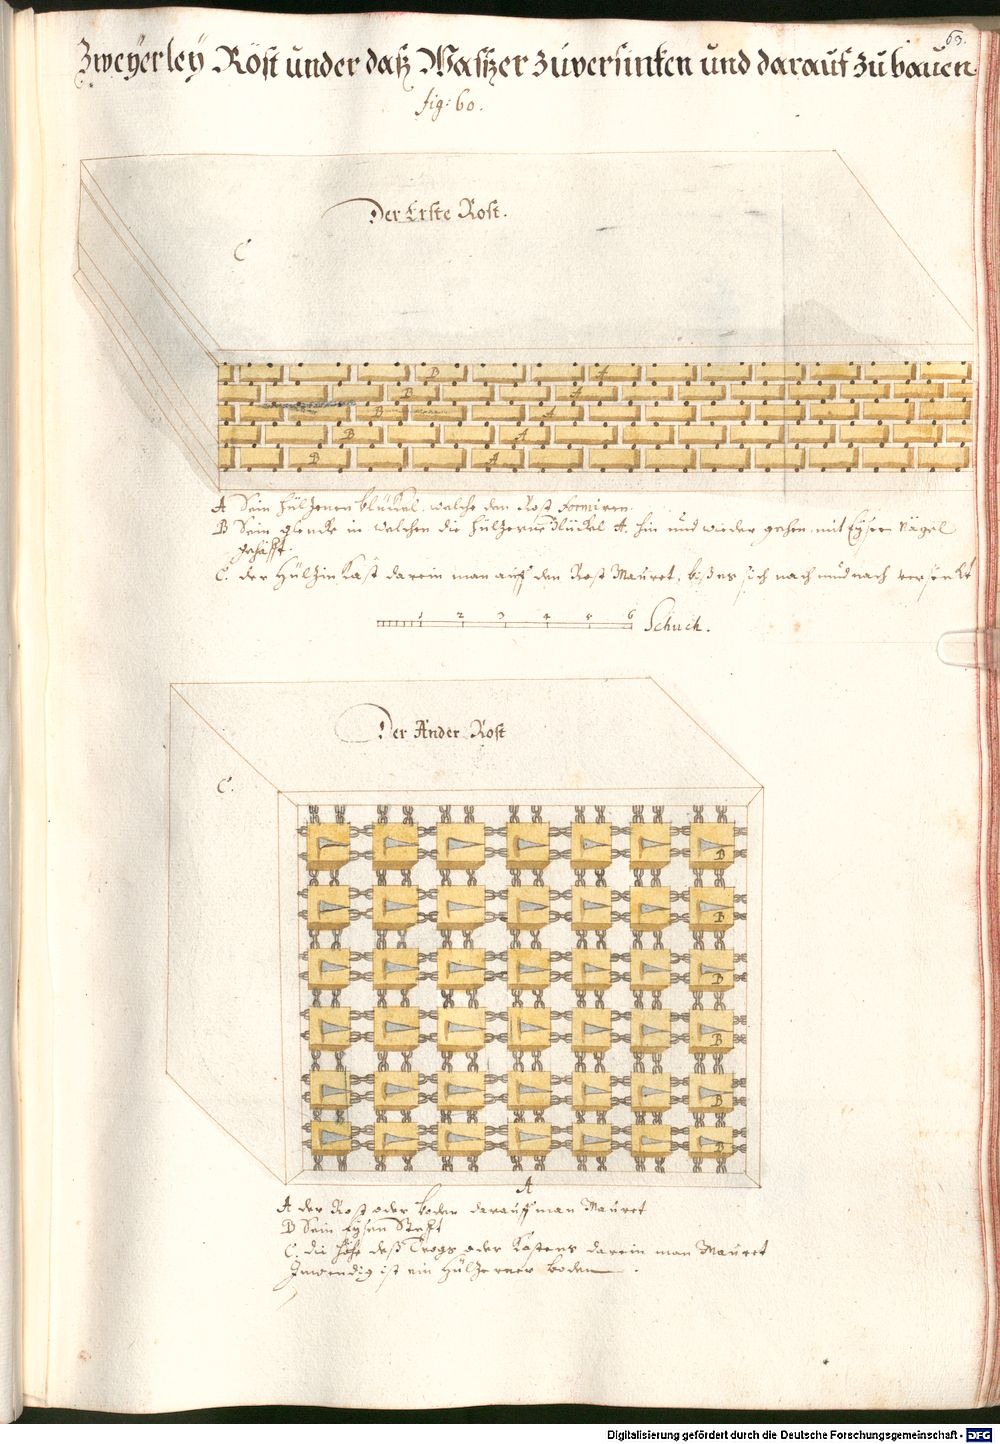 63.
Zweyerley Röst under daß Wasßer zuversinken und darauf zu bauen.
fig: 60.
Der Erste Rost.
C
B A
B A
B A
B A
B A
A Sein hülzenen Klükel, welche den Rost formiren.
B Sein glencke in welchen die hülzerne Klückel A. hin und wieder gehen, mit Eysen Nägel
gehäfft.
C. der Hülzin Kast darein man auff den Rost Mauret, biß es sich nach und nach versenkt
1 2 3 4 5 6 Schuch.
Der Ander Rost
C.
B
B
B
B
B
B
A
A der Rost oder boden darauff man Mauret
B Sein Eysen Stefft
C. die Höhe deß Trogs oder Kastens darein man Mauret
Inwendig ist ein hülzerner boden.
Digitalisierung gefördert durch die Deutsche Forschungsgemeinschaft - DFG